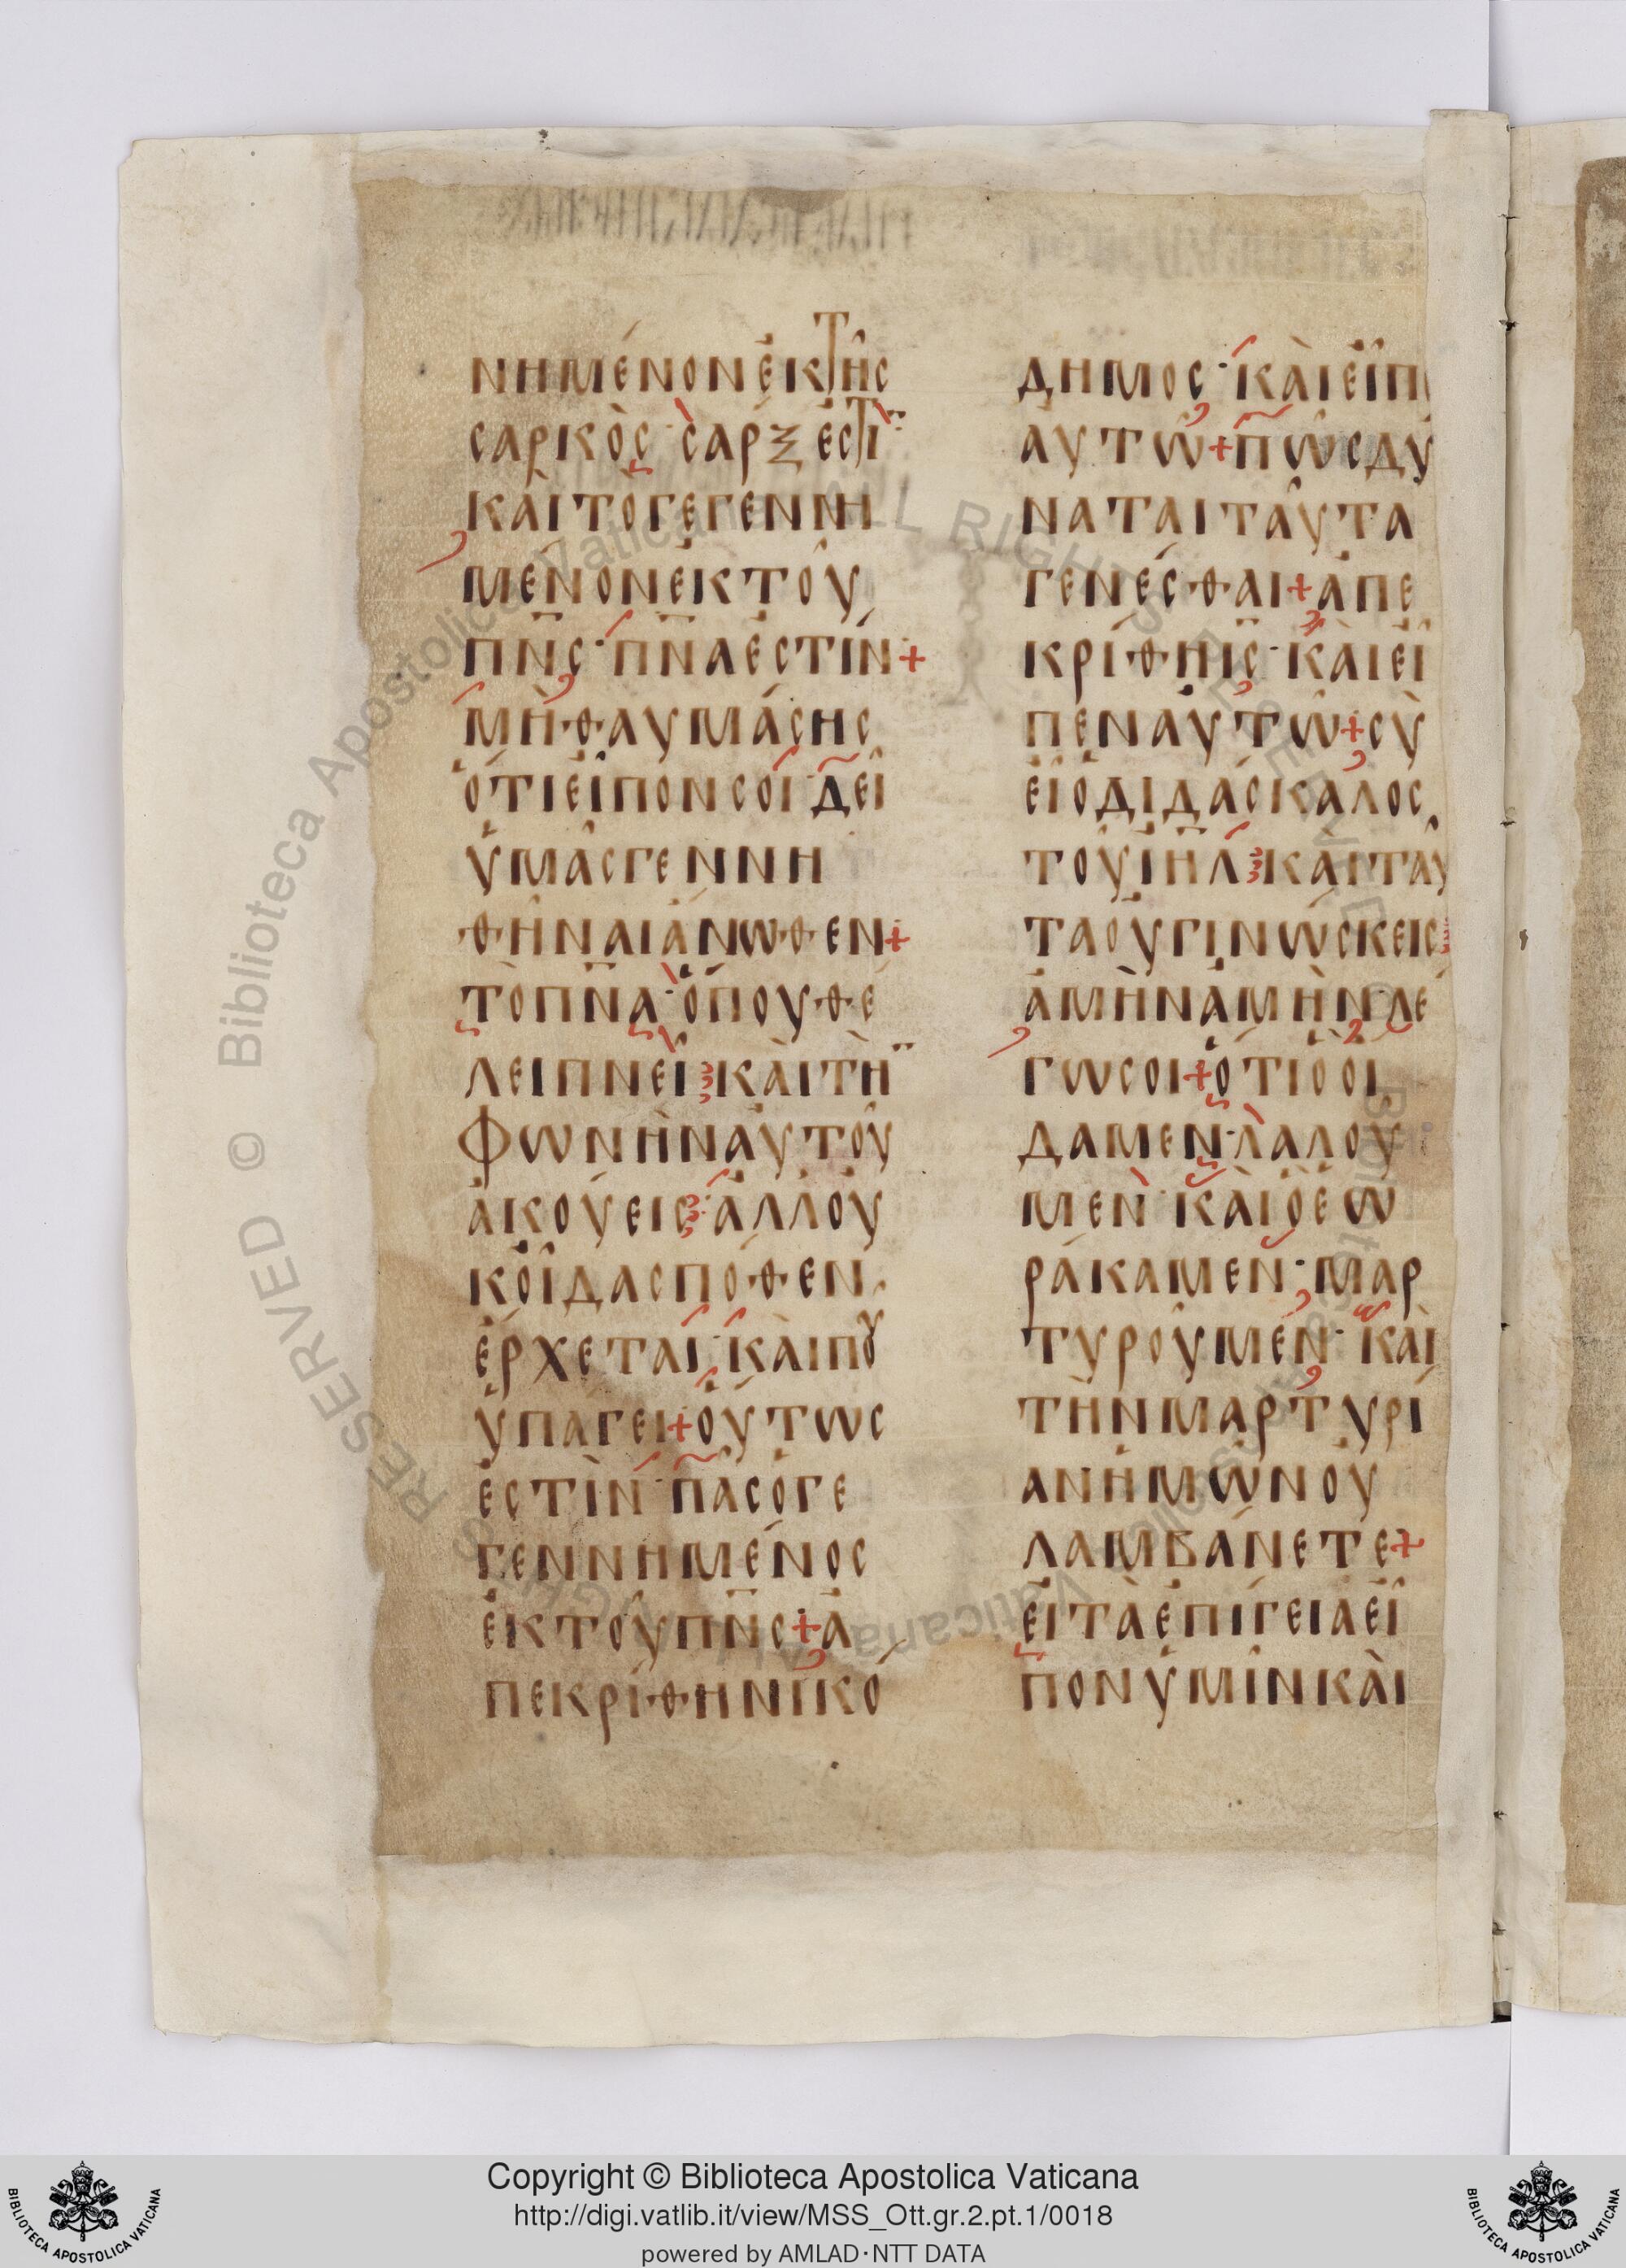 ΝΗΜΈΝΟΝἘΚΤΗ͂Σ
ΣΑΡΚῸΣ· ΣᾺΡΞ ἘΣΤΙ
ΚΑῚΤῸΓΕΓΕΝΝΗ
ΜΈΝΟΝἘΚΤΟΥ͂
ΠΝ̅Σ· ΠΝ̅ΑἘΣΤΊΝ+
ΜῊΘΑΥΜΆΣΗΣ
ὍΤΙΕἾΠΟΝΣΟΙ· ΔΕΙ͂
ὙΜΑ͂ΣΓΕΝΝΗ
ΘΗ͂ΝΑΙἌΝΩΘΕΝ+
ΤῸΠΝ̅Α· ὍΠΟΥΘΈ
ΛΕΙΠΝΕΙ͂ ΚΑῚΤῊ
ΦΩΝῊΝΑὙΤΟΥ͂
ἈΚΟΎΕΙΣ· ἈΛΛΟΥ
ΚΟἾΔΑΣΠΌΘΕΝ
ἜΡΧΕΤΑΙ· ΚΑῚΠΟΥ
ὙΠΆΓΕΙ+ΟὝΤΩΣ
ἘΣΤῚΝ· ΠΑ͂ΣὉΓΕ
ΓΕΝΝΗΜΈΝΟΣ
ἘΚΤΟΥ͂ΠΝ̅Σ+Ἀ
ΠΕΚΡΊΘΗΝΙΚΌ
ΔΗΜΟΣ· ΚΑῚΕἾΠ
ΑΥΤΩ͂+ΠΩ͂ΣΔΥ
ΝΑΤΑΙΤΑΥ͂ΤΑ
ΓΕΝΈΣΘΑΙ+ἈΠΕ
ΚΡΊΘΗΙ̅Σ· ΚΑῚΕἾ
ΠΕΝΑΥΤΩ͂+ΣῪ
ΕἾὉΔΙΔΆΣΚΑΛΟΣ
ΤΟΥ͂ΙΗ̅Λ ΚΑῚΤΑΥ͂
ΤΑΟΥΓΙΝΏΣΚΕΙΣ
ἈΜῊΝἈΜῊΝ·ΛΈ
ΓΩΣΟΙ+ὍΤΙὉΟἼ
ΔΑΜΕΝ·ΛΑΛΟΥ
ΜΕΝ· ΚΑῚὉἙΩ
ΡΆΚΑΜΕΝ· ΜΑΡ
ΤΥΡΟΥ͂ΜΕΝ· ΚΑῚ
ΤῊΝΜΑΡΤΥΡΊ
ΑΝἩΜΩ͂ΝΟΥ
ΛΑΜΒΆΝΕΤΕ+
ΕἸΤᾺἘΠΊΓΕΙΑΕἾ
ΠΟΝὙΜΙ͂ΝΚΑῚ
Copyright © Biblioteca Apostolica Vaticana
http://digi.vatlib.it/view/MSS_Ott.gr.2.pt.1/0018
powered by AMLAD·NTT DATA
BIBLIOTECA APOSTOLICA VATICANA
BIBLIOTECA APOSTOLICA VATICANA